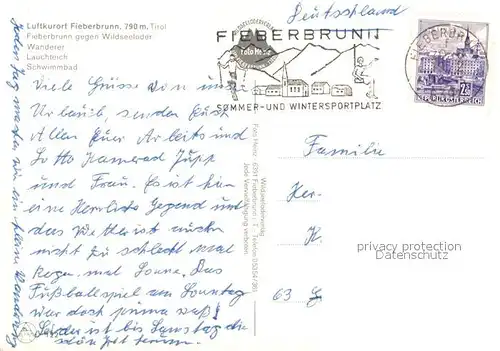 Luftkurort Fieberbrunn, 790 m, Tirol
Fieberbrunn gegen Wildseeloder
Wanderer
Lauchteich
Schwimmbad
Viele Grüsse von unserem
Urlaub, senden Euch
Allen Euer Arbeits und
Lotto Kamerad Jupp
und Frau. Es ist hier
eine Herrliche Gegend und
das Wetter ist auch
nicht zu schlecht mal
Regen mal Sonne. Das
Fußballspiel am Sonntag
war doch prima was!
Leider ist bis Samstag die
schön zeit herum.
Jeden Tag machen wir ein kleine Wanderung
Wildseeloderverlag
Foto Heinz 6391 Fieberbrunn i. T., Telefon 05354/
Jede Vervielfältigung verboten
Deutschland
FIEBERBRUNN
Foto Heinz
SOMMER-UND WINTERSPORTPLATZ
FIEBERBRUNN
REPUBLIK ÖSTERREICH
Familie
Her-
K.
63 G
privacy protection
Datenschutz